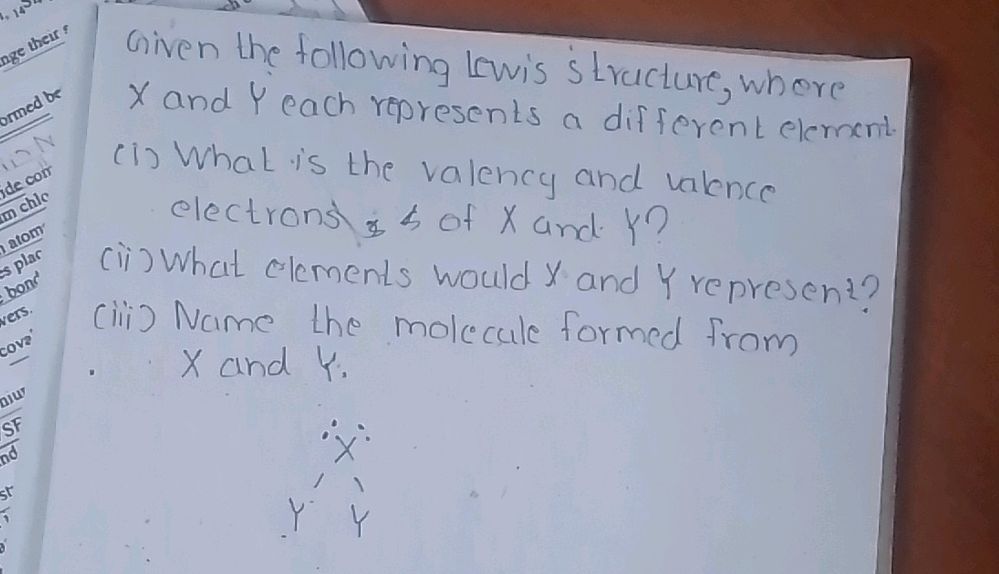 nge their
ormed be
ide con
m chlo
atom
es plac
bond
vers.
cova
SF
nd
Given the following Lewis structure, where
X and Y each represents a different element.
(i) What is the valency and valence
electrons of X and Y?
(ii) What elements would X and Y represent?
(iii) Name the molecule formed from
X and Y.
X
Y Y